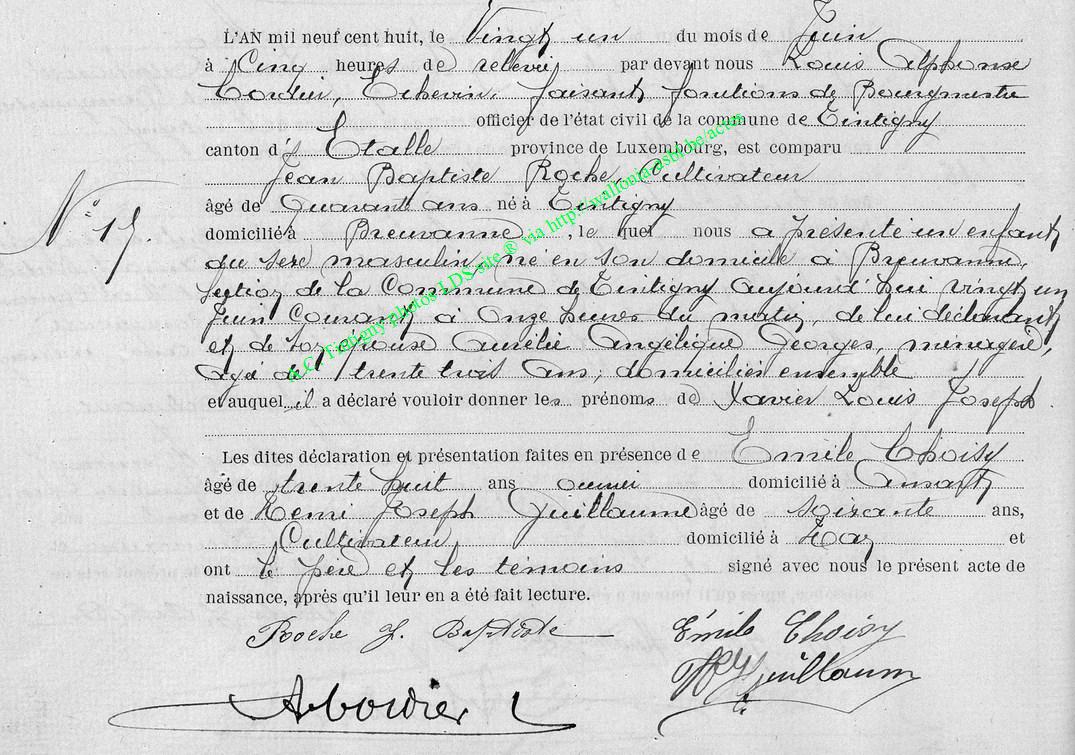 L'AN mil neuf cent huit, le Vingt un du mois de Juin
à Cinq heures de relevée par devant nous Louis Alphonse
Echevin, faisant fonctions de Bourgmestre
officier de l'état civil de la commune de Tintigny
canton d' Etalle province de Luxembourg, est comparu
Jean Baptiste Roche, Cultivateur
âgé de Quarante ans né à Tintigny
domicilié à Breuvanne, le quel nous a présenté un enfant
du sexe masculin, né en son domicile à Breuvanne,
section de la Commune de Tintigny aujourd'hui vingt un
Juin Courant, à Onze heures du matin, de lui déclarant
et de son épouse Aurélie Angélique Georges, ménagère,
âgé de trente trois ans, domiciliés ensemble
et auquel il a déclaré vouloir donner les prénoms de Xavier Louis Joseph.
Les dites déclaration et présentation faites en présence de Emile Choisy
âgé de trente huit ans domicilié à Ansart
et de Henri Joseph Guillaume âgé de soixante ans,
Cultivateur domicilié à et
ont le père et les témoins signé avec nous le présent acte de
naissance, après qu'il leur en a été fait lecture.
N° 15.
Roche J. Baptiste
Émile Choisy
Guillaume
A.C. Tintigny photos LDS site ® via http://wallonia.asbl.be/actes